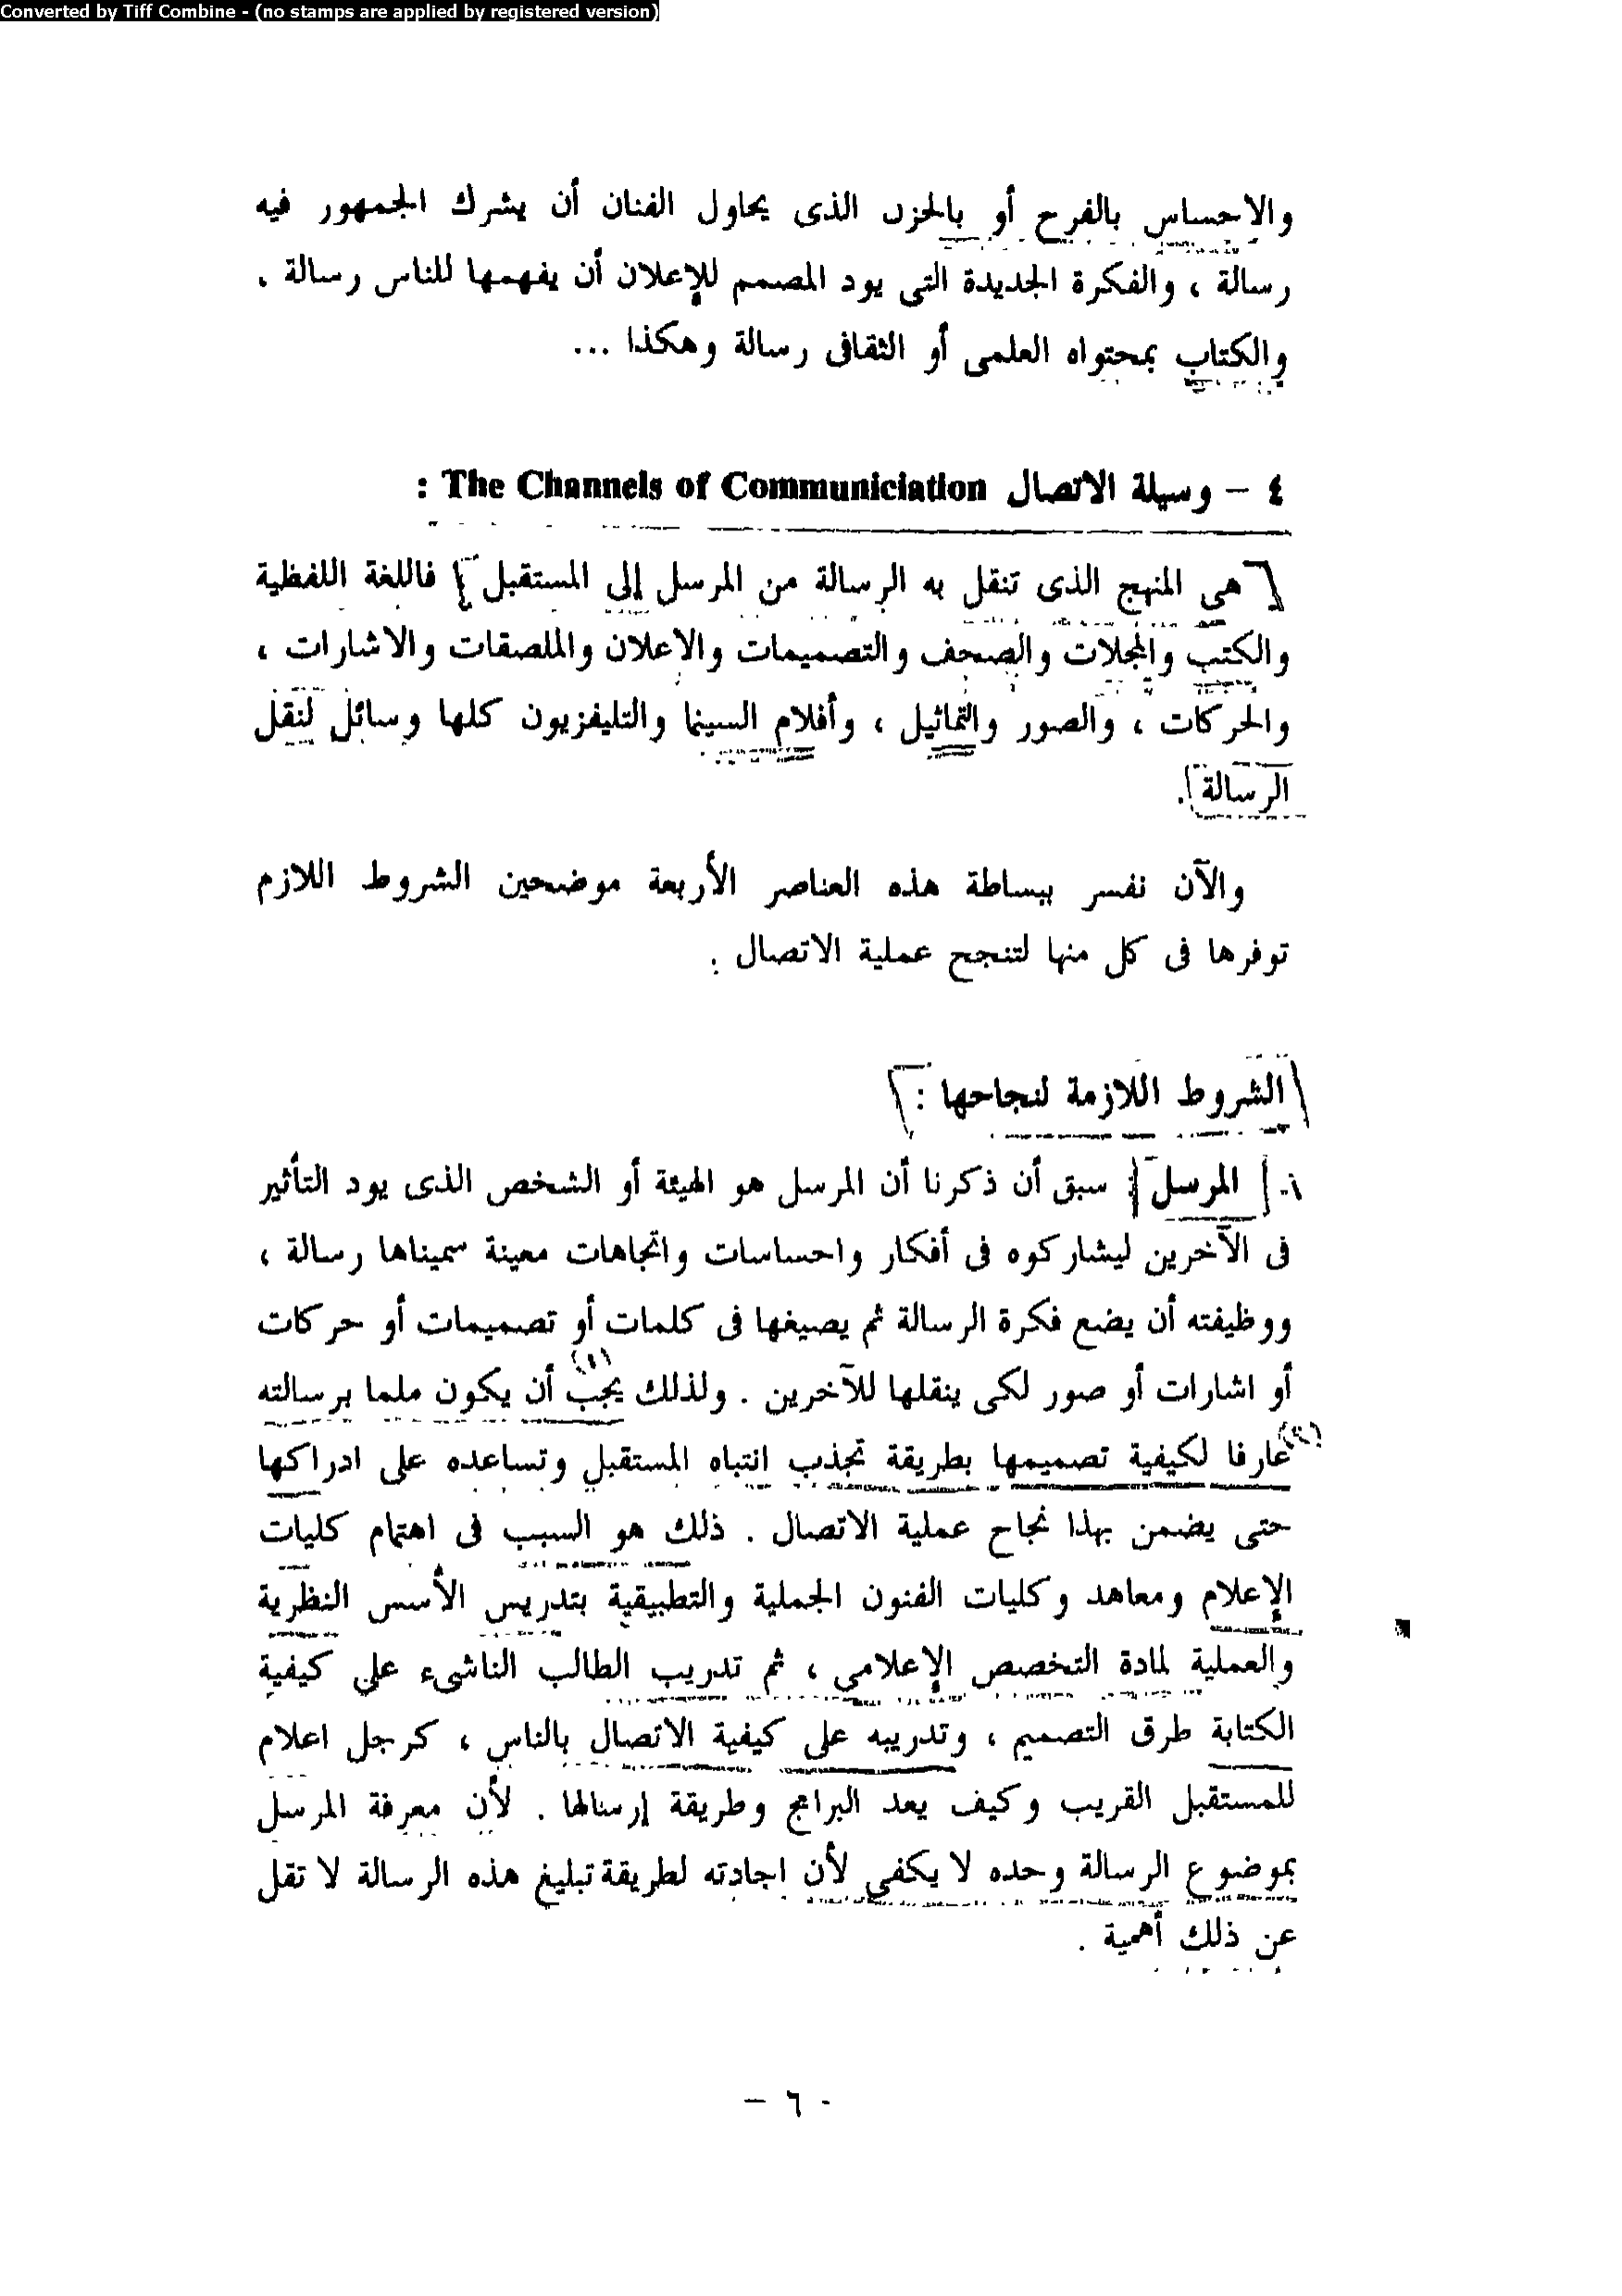 Converted by Tiff Combine - (no stamps are applied by registered version)
والاحساس بالفرح أو بالحزن الذى يحاول الفنان أن يشرك الجمهور فيه
رسالة ، والفكرة الجديدة التى يود المصمم للإعلان أن يفهمها للناس رسالة .
والكتاب بمحتواه العلمى أو الثقافى رسالة وهكذا ...
٤ – وسيلة الاتصال The Channels of Communiciation :
هى المنهج الذى تنقل به الرسالة من المرسل إلى المستقبل فاللغة اللفظية
والكتب والمجلات والصحف والتصميمات والاعلان والملصقات والاشارات ،
والحركات ، والصور والتماثيل ، وأفلام السينما والتليفزيون كلها وسائل لنقل
الرسالة .
والآن نفسر ببساطة هذه العناصر الأربعة موضحين الشروط اللازم
توفرها فى كل منها لتنجح عملية الاتصال :
الشروط اللازمة لنجاحها :
١- المرسل : سبق أن ذكرنا أن المرسل هو الهيئة أو الشخص الذى يود التأثير
فى الآخرين ليشاركوه فى أفكار واحساسات واتجاهات معينة سميناها رسالة ،
ووظيفته أن يضع فكرة الرسالة ثم يصيغها فى كلمات أو تصميمات أو حركات
أو اشارات أو صور لكى ينقلها للآخرين . ولذلك يجب (١) أن يكون ملما برسالته
(٢) عارفا لكيفية تصميمها بطريقة تجذب انتباه المستقبل وتساعده على ادراكها
حتى يضمن بهذا نجاح عملية الاتصال . ذلك هو السبب فى اهتمام كليات
الإعلام ومعاهد وكليات الفنون الجملية والتطبيقية بتدريس الأسس النظرية
والعملية لمادة التخصص الإعلامى ، ثم تدريب الطالب الناشىء على كيفية
الكتابة طرق التصميم ، وتدريبه على كيفية الاتصال بالناس ، كرجل اعلام
للمستقبل القريب وكيف يعد البرامج وطريقة إرسالها . لأن معرفة المرسل
بموضوع الرسالة وحده لا يكفى لأن اجادته لطريقة تبليغ هذه الرسالة لا تقل
عن ذلك أهمية .
- ٦ –